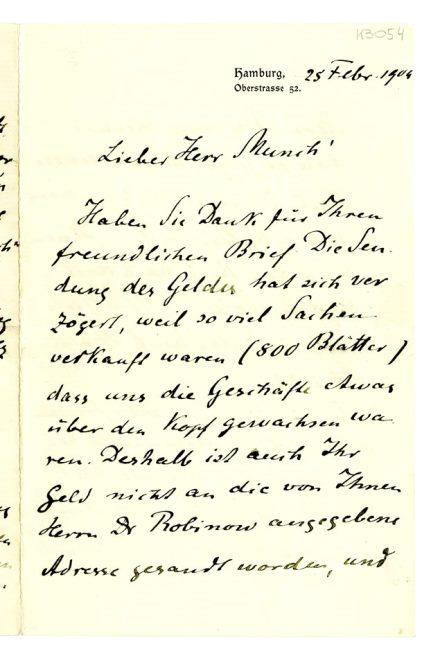 K3054
Hamburg, 25 Febr. 1904
Oberstrasse 52.
Lieber Herr Munch!
Haben Sie Dank für Ihren
freundlichen Brief. Die Sen-
dung des Geldes hat sich ver
zögert, weil so viel Sachen
verkauft waren (800 Blätter)
dass uns die Geschäfte etwas
über den Kopf gewachsen wa
ren. Deshalb ist auch Ihr
Geld nicht an die von Ihnen
Herrn Dr Robinow angegebene
Adresse gesandt worden, und